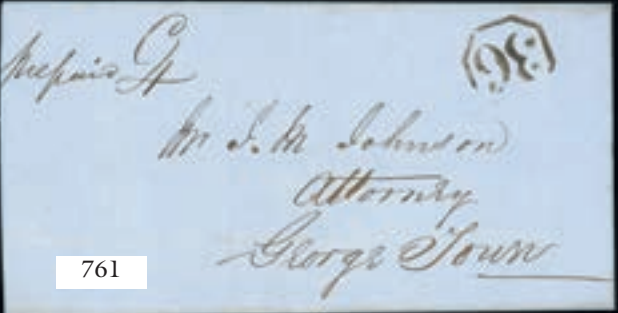 Prepaid 4
36
Mr J. M Johnson
Attorney
George Town
761